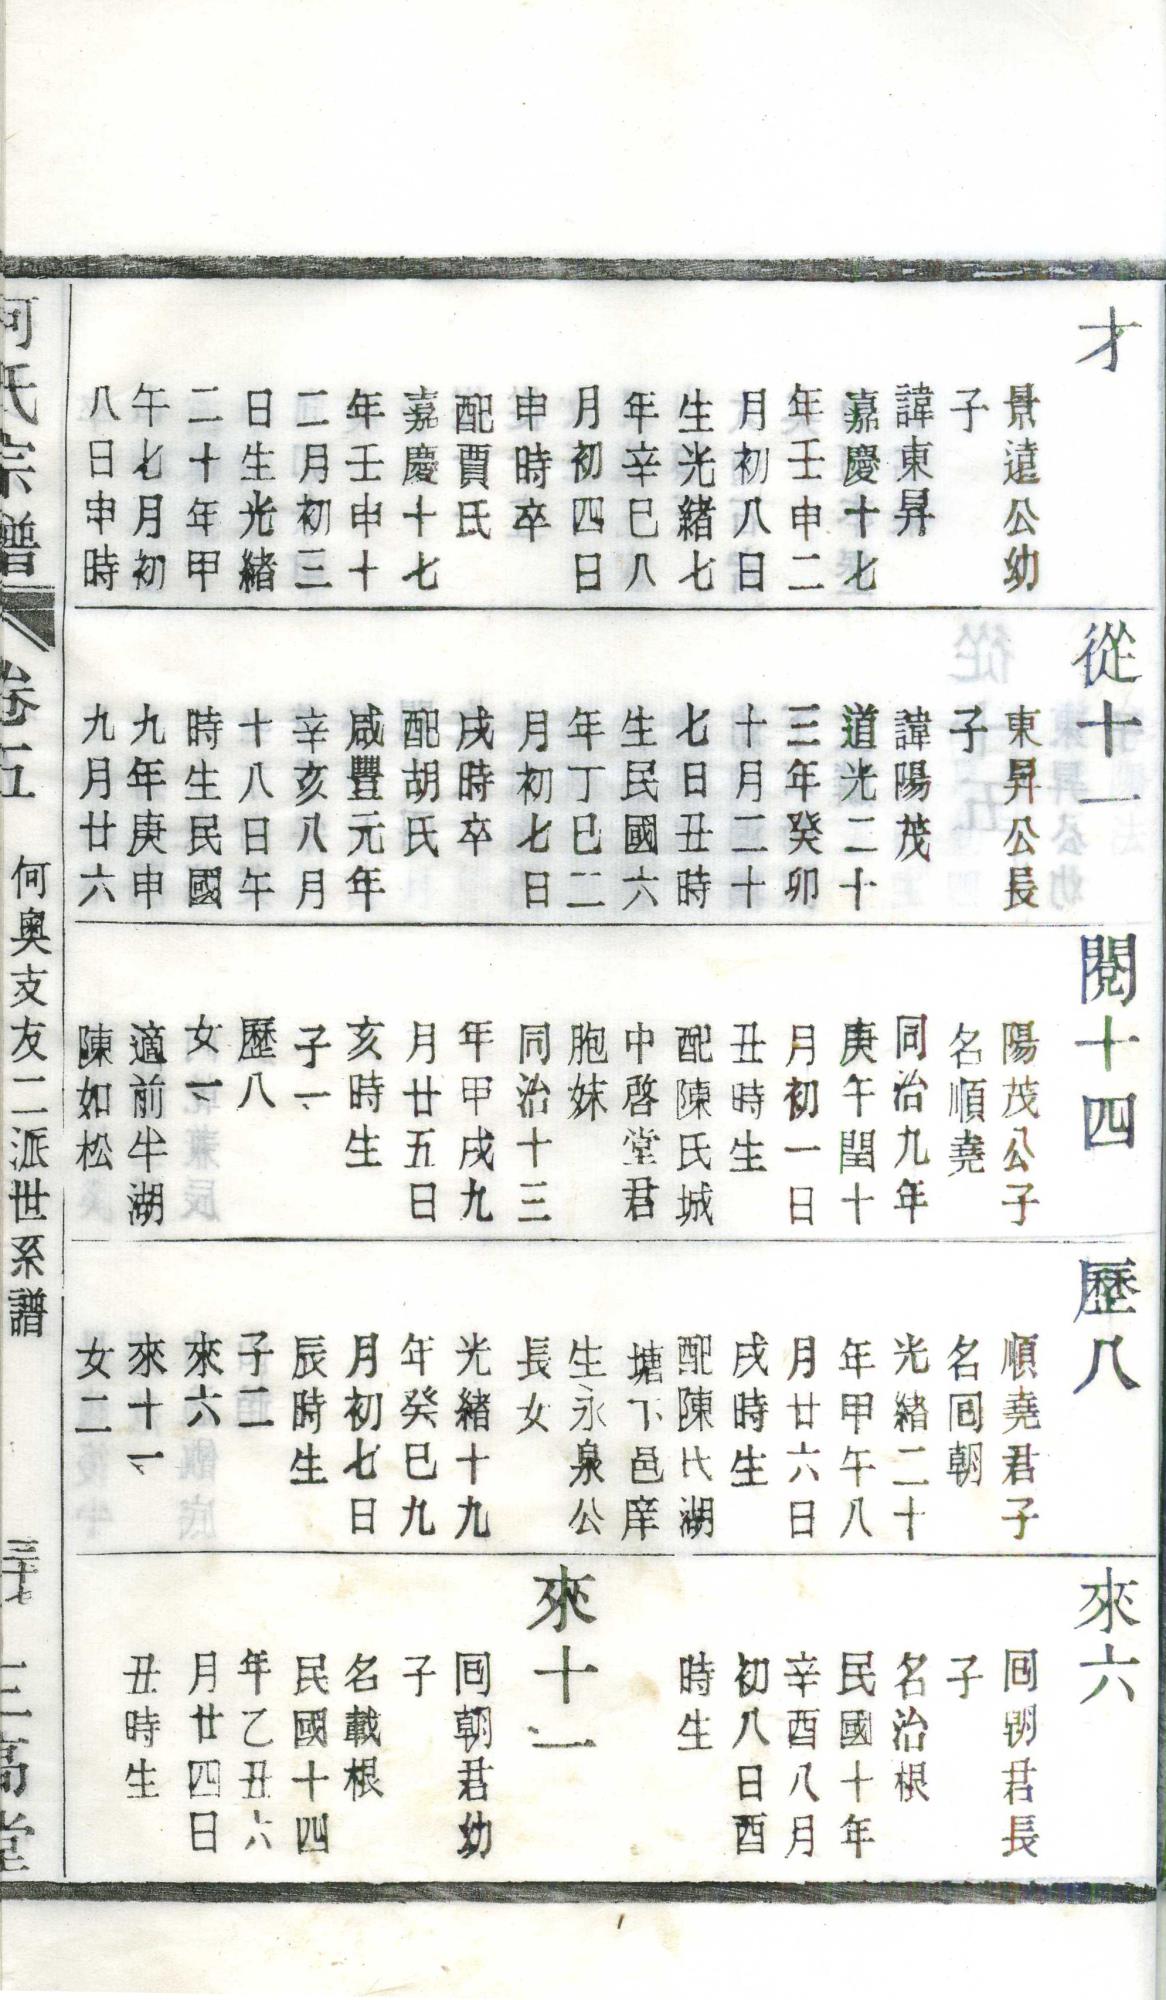 才
景遠公幼
子
諱東昇
嘉慶十七
年壬申二
月初八日
生光緒七
年辛巳八
月初四日
申時卒
配賈氏
嘉慶十七
年壬申十
二月初三
日生光緒
二十年甲
午七月初
八日申時
從十一
東昇公長
子
諱陽茂
道光二十
三年癸卯
十月二十
七日丑時
生民國六
年丁巳二
月初七日
戌時卒
配胡氏
咸豐元年
辛亥八月
十八日午
時生民國
九年庚申
九月廿六
閱十四
陽茂公子
名順堯
同治九年
庚午閏十
月初一日
丑時生
配陳氏城
中啓堂君
胞妹
同治十三
年甲戌九
月廿五日
亥時生
子一
歷八
女一
適前牛湖
陳如松
歷八
順堯君子
名囘朝
光緒二十
年甲午八
月廿六日
戌時生
配陳氏湖
塘下邑庠
生永泉公
長女
光緒十九
年癸巳九
月初七日
辰時生
子二
來六
來十一
女二
來六
囘朝君長
子
名治根
民國十年
辛酉八月
初八日酉
時生
來十一
囘朝君幼
子
名載根
民國十四
年乙丑六
月廿四日
丑時生
何氏宗譜
卷五
何奧支友二派世系譜
三十七
三高堂